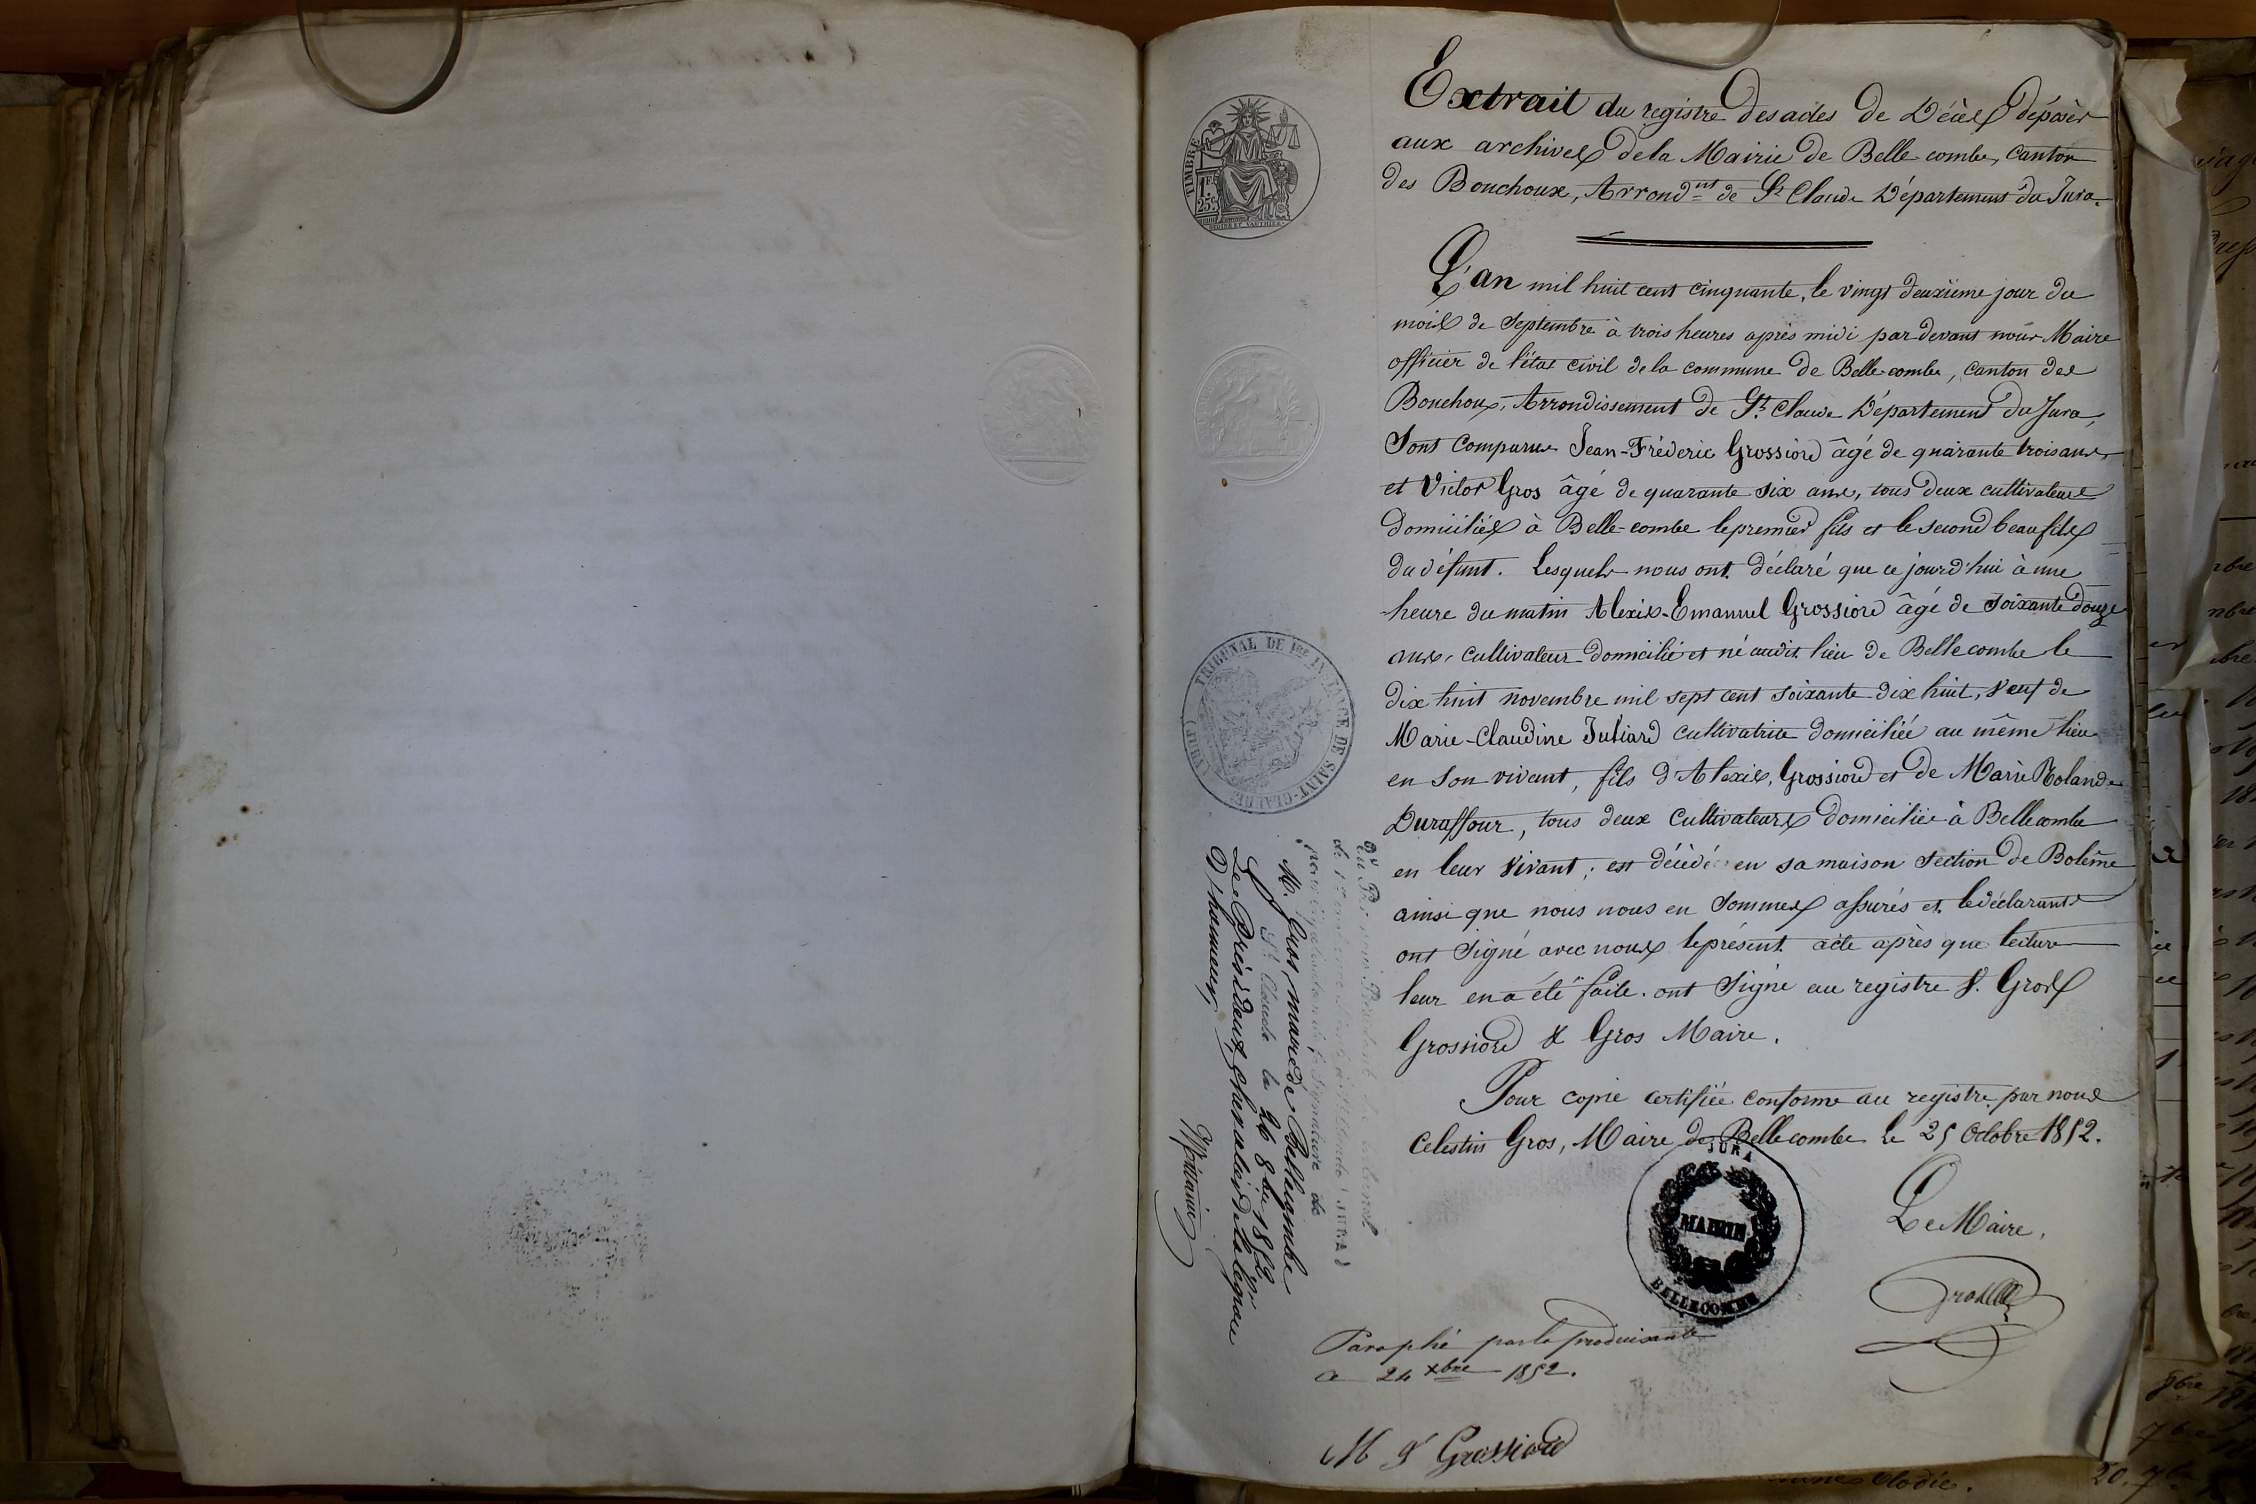 Extrait du registre des actes de Décès déposés
aux archives de la Mairie de Belle combe, canton
des Bouchoux, Arrond.nt de St Claude Département du Jura.
L'an mil huit cent cinquante, le vingt deuxième jour du
mois de Septembre à trois heures après midi par devant nous Maire
officier de l'état civil de la commune de Belle-combe, canton des
Bouchoux, Arrondissement de St Claude Département du Jura,
Sont comparus Jean-Fréderic Grossiord âgé de quarante trois ans
et Victor Gros âgé de quarante six ans, tous deux cultivateurs
domiciliés à Belle-combe le premier fils et le second beau fils
du défunt. Lesquels nous ont déclaré que ce jourd'hui à une
heure du matin Alexis-Emanuel Grossiord âgé de soixante douze
ans, cultivateur domicilié et né audit lieu de Bellecombe le
dix huit novembre mil sept cent soixante dix huit, veuf de
Marie-Claudine Juliard cultivatrice domiciliée au même lieu
en son vivant, fils d'Alexis, Grossiord et de Marie Rolande
Duraffour, tous deux cultivateurs domiciliés à Bellecombe
en leur vivant ; est décédé en sa maison section de Bolème
ainsi que nous nous en sommes assurés et les déclarants
ont signé avec nous le présent acte après que lecture
leur en a été faite. ont signé au registre V. Gros
Grossiord & Gros Maire.
Pour copie certifiée conforme au registre par nous
Celestin Gros, Maire de Bellecombe le 25 Octobre 1852.
Le Maire,
Gros
JURA
MAIRIE
BELLECOMBE
Paraphé par la produisante
a 24 xbre 1852.
M J Grossiord
TIMBRE
1 Fr.
25 C.
TRIBUNAL DE 1ère INSTANCE DE SAINT-CLAUDE (JURA)
Vu par nous Président
de St Claude (JURA)
pour légalisation de la signature de
M. Gros, maire de Bellecombe
St Claude le 26 8bre 1852.
Le Président, chevalier de la légion
d'honneur,